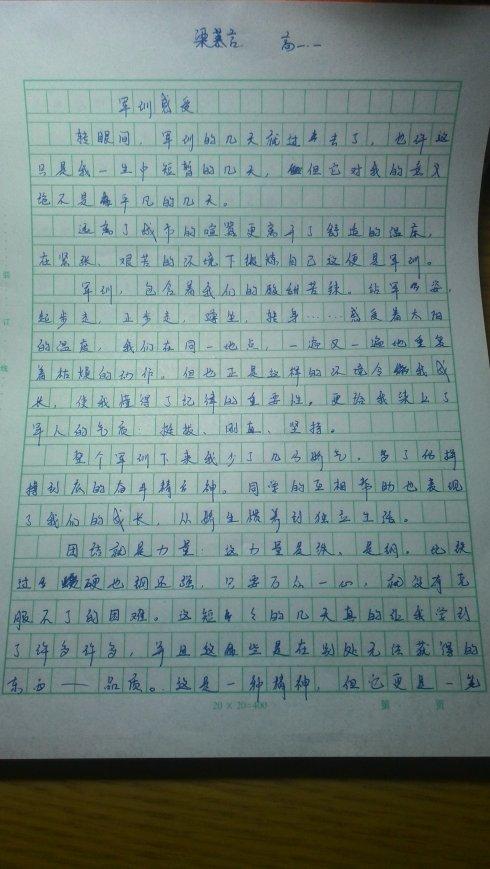 梁慕言 高一.一
军训感受
转眼间，军训的几天就过去了，也许这
只是我一生中短暂的几天，但它对我的意义
绝不是平凡的几天。
远离了城市的喧嚣更离开了舒适的温床，
在紧张、艰苦的环境下锻炼自己这便是军训。
军训，包含着我们的酸甜苦辣。站军姿，
起步走，正步走，蹲坐，转身……感受着太阳
的温度，我们在同一地点，一遍又一遍地重复
着枯燥的动作。但也正是这样的环境令我成
长，使我懂得了纪律的重要性。更给我染上了
军人的气质：挺拔、刚直、坚持。
整个军训下来我少了几分娇气，多了份坚
持到底的奋斗精神。同学的互相帮助也表现
了我们的成长，从娇生惯养到独立生活。
团结就是力量：这力量是铁，是钢。比铁
还硬比钢还强，只要万众一心，就没有克
服不了的困难。这短短的几天真的让我学到
了许多许多，并且这些是在别处无法获得的
东西——品质。这是一种精神，但它更是一笔
20×20=400 第 页
装
订
线